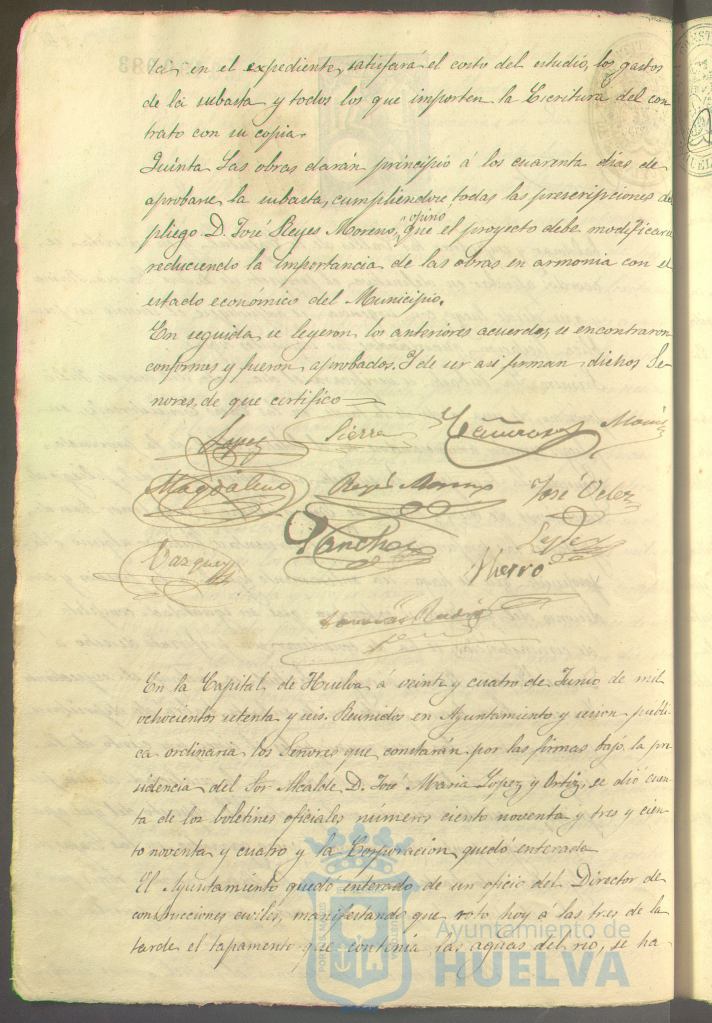 ta en el expediente, satisfará el costo del estudio, los gastos
de la subasta y todos los que importen la Escritura del con
trato con su copia.
Quinta Las obras darán principio á los cuarenta dias de
aprobarse la subasta, cumpliendose todas las prescripciones del
pliego D. José Reyes Moreno, opino que el proyecto debe modificarse
reduciendo la importancia de las obras en armonia con el
estado económico del Municipio.
En seguida se leyeron los anteriores acuerdos, se encontraron
conformes y fueron aprobados. Y de ser asi firman dichos Se-
ñores, de que certifico
Lopez Sierra
Magdaleno Reyes Moreno José Velez
Vazquez Sanchez Lopez
Hierro
En la Capital de Huelva á veinte y cuatro de Junio de mil
ochocientos setenta y seis. Reunidos en Ayuntamiento y sesion públi
ca ordinaria los Señores que constarán por las firmas bajo la pre
sidencia del Sor Alcalde D. José Maria Lopez y Ortiz, se dió cuen
ta de los boletines oficiales números ciento noventa y tres y cien
to noventa y cuatro y la Corporación quedó enterada
El Ayuntamiento quedó enterado de un oficio del Director de
construcciones civiles, manifestando que roto hoy á las tres de la
tarde el tapamento que contenia las aguas del rio, se ha
Ayuntamiento de
HUELVA